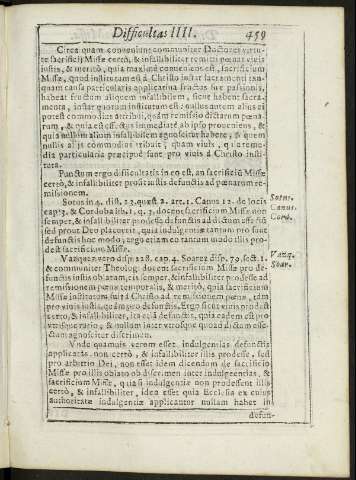 Difficultas IIII. 459
Circa quam conveniunt communiter Doctores virtu-
te sacrificij Missæ certò, & infallibiliter remitti pœnas vivis
iustis, & meritò, quia maximè conveniens est, sacrificium
Missæ, quod institutum est à Christo instar sacramenti tan-
quam causa particularis applicativa fructus suæ passionis,
habeat fructum aliquem infallibilem, sicut habent sacra-
menta, instar quorum institutum est: nullus autem alius ei
potest commodius attribui, quàm remissio dictarum pœna-
rum, & quia est effectus immediatè ab ipso proveniens, &
quia nullum alium infallibilem agnoscitur habere, & quem
nullis alijs commodius tribui, quam vivis, quia reme-
dia particularia præcipuè sunt pro vivis á Christo insti-
tuta.
Punctum ergo difficultatis in eo est, an sacrificiũ Missæ
certò, & infallibiliter prosit iustis defunctis ad pœnarum re-
missionem.
Sotus in 4. dist. 13. quæst. 2. art. 1. Canus 12. de locis
cap. 3. & Corduba lib. 1. q. 3. docent sacrificium Missæ non
semper, & infallibiliter prodesse defunctis ad dictum effectũ
sed prout Deo placverit, quia indulgentiæ tantum pro sunt
defunctis hoc modo, ergo etiam eo tantum modo illis prod-
est sacrificium Missæ.
Sotus.
Canus.
Cord.
Vazquez vero disp. 228. cap. 4. Soarez disp. 79. sect. 1.
& communiter Theolog. docent sacrificium Missæ pro de-
functis iustis oblatum, ets semper, & infallibiliter prodesse ad
remissionem pœnæ temporalis, & meritò, quia sacrificium
Missæ institutum fuit à Christo ad remissionem pœnæ, tàm
pro vivis iustis, quàm pro defunctis. Ergo sicut vivis prodest
certò, & infallibiliter, ita et defunctis, quia eadem est pro
vtrisque ratio, & nullam inter vtrosque quoad dictum effe-
ctum agnoscitur discrimen.
Vazq.
Soar.
Vnde quamuis verum esset indulgentias defunctis
applicatas non certò, & infallibiliter illis prodesse, sed
pro arbitrio Dei, non esset idem dicendum de sacrificio
Missæ pro illis oblato ob discrimen inter indulgentias, &
sacrificium Missæ, quia si indulgentiæ non prodessent illis
certò, & infallibiliter, idea esset quia Ecclesia ex cuius
authoritate indulgentiæ applicantur nullam habet in
defun-